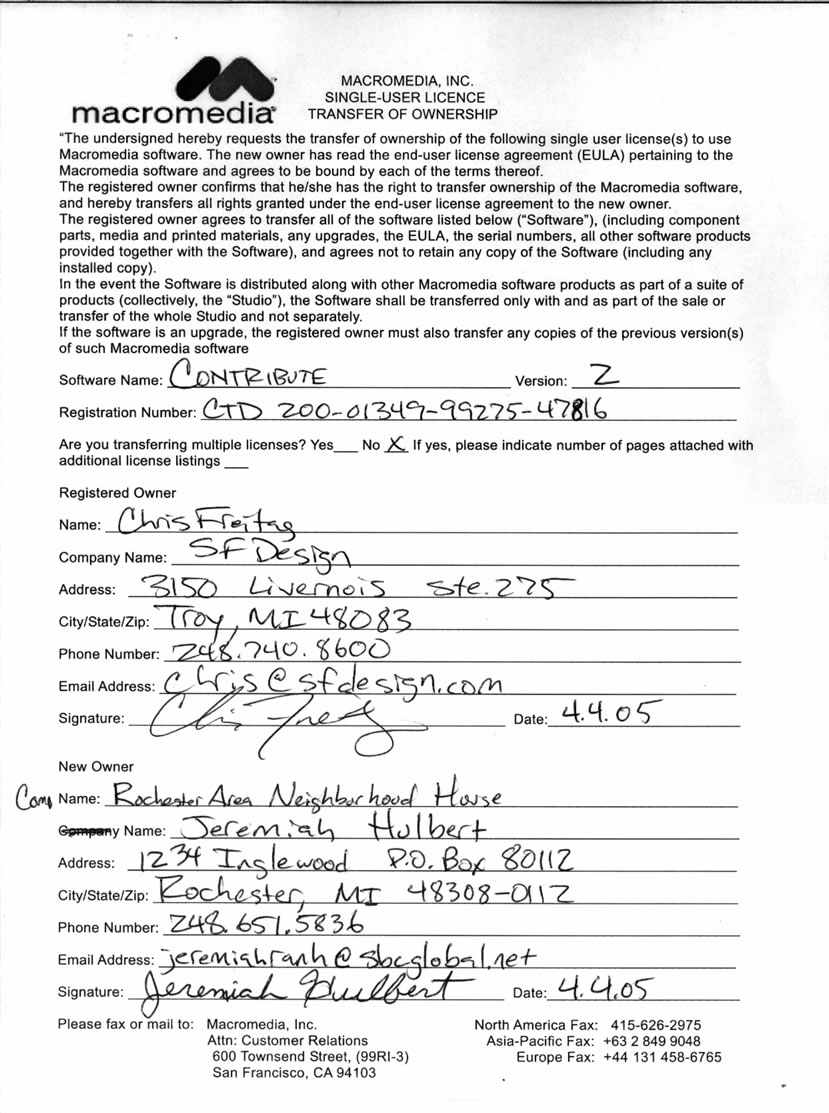 macromedia
MACROMEDIA, INC.
SINGLE-USER LICENCE
TRANSFER OF OWNERSHIP
"The undersigned hereby requests the transfer of ownership of the following single user license(s) to use
Macromedia software. The new owner has read the end-user license agreement (EULA) pertaining to the
Macromedia software and agrees to be bound by each of the terms thereof.
The registered owner confirms that he/she has the right to transfer ownership of the Macromedia software,
and hereby transfers all rights granted under the end-user license agreement to the new owner.
The registered owner agrees to transfer all of the software listed below ("Software"), (including component
parts, media and printed materials, any upgrades, the EULA, the serial numbers, all other software products
provided together with the Software), and agrees not to retain any copy of the Software (including any
installed copy).
In the event the Software is distributed along with other Macromedia software products as part of a suite of
products (collectively, the "Studio"), the Software shall be transferred only with and as part of the sale or
transfer of the whole Studio and not separately.
If the software is an upgrade, the registered owner must also transfer any copies of the previous version(s)
of such Macromedia software
Software Name: CONTRIBUTE Version: 2
Registration Number: CTD 200-01349-99275-47816
Are you transferring multiple licenses? Yes___ No X If yes, please indicate number of pages attached with
additional license listings ___
Registered Owner
Name: Chris Freitag
Company Name: SF Design
Address: 3150 Livernois Ste. 275
City/State/Zip: Troy, MI 48083
Phone Number: 248.740.8600
Email Address: chris@sfdesign.com
Signature: Chris Freitag Date: 4.4.05
New Owner
Comp Name: Rochester Area Neighborhood House
Company Name: Jeremiah Hulbert
Address: 1234 Inglewood P.O. Box 80112
City/State/Zip: Rochester, MI 48308-0112
Phone Number: 248.651.5836
Email Address: jeremiahranh@sbcglobal.net
Signature: Jeremiah Hulbert Date: 4.4.05
Please fax or mail to: Macromedia, Inc. North America Fax: 415-626-2975
Attn: Customer Relations Asia-Pacific Fax: +63 2 849 9048
600 Townsend Street, (99RI-3) Europe Fax: +44 131 458-6765
San Francisco, CA 94103